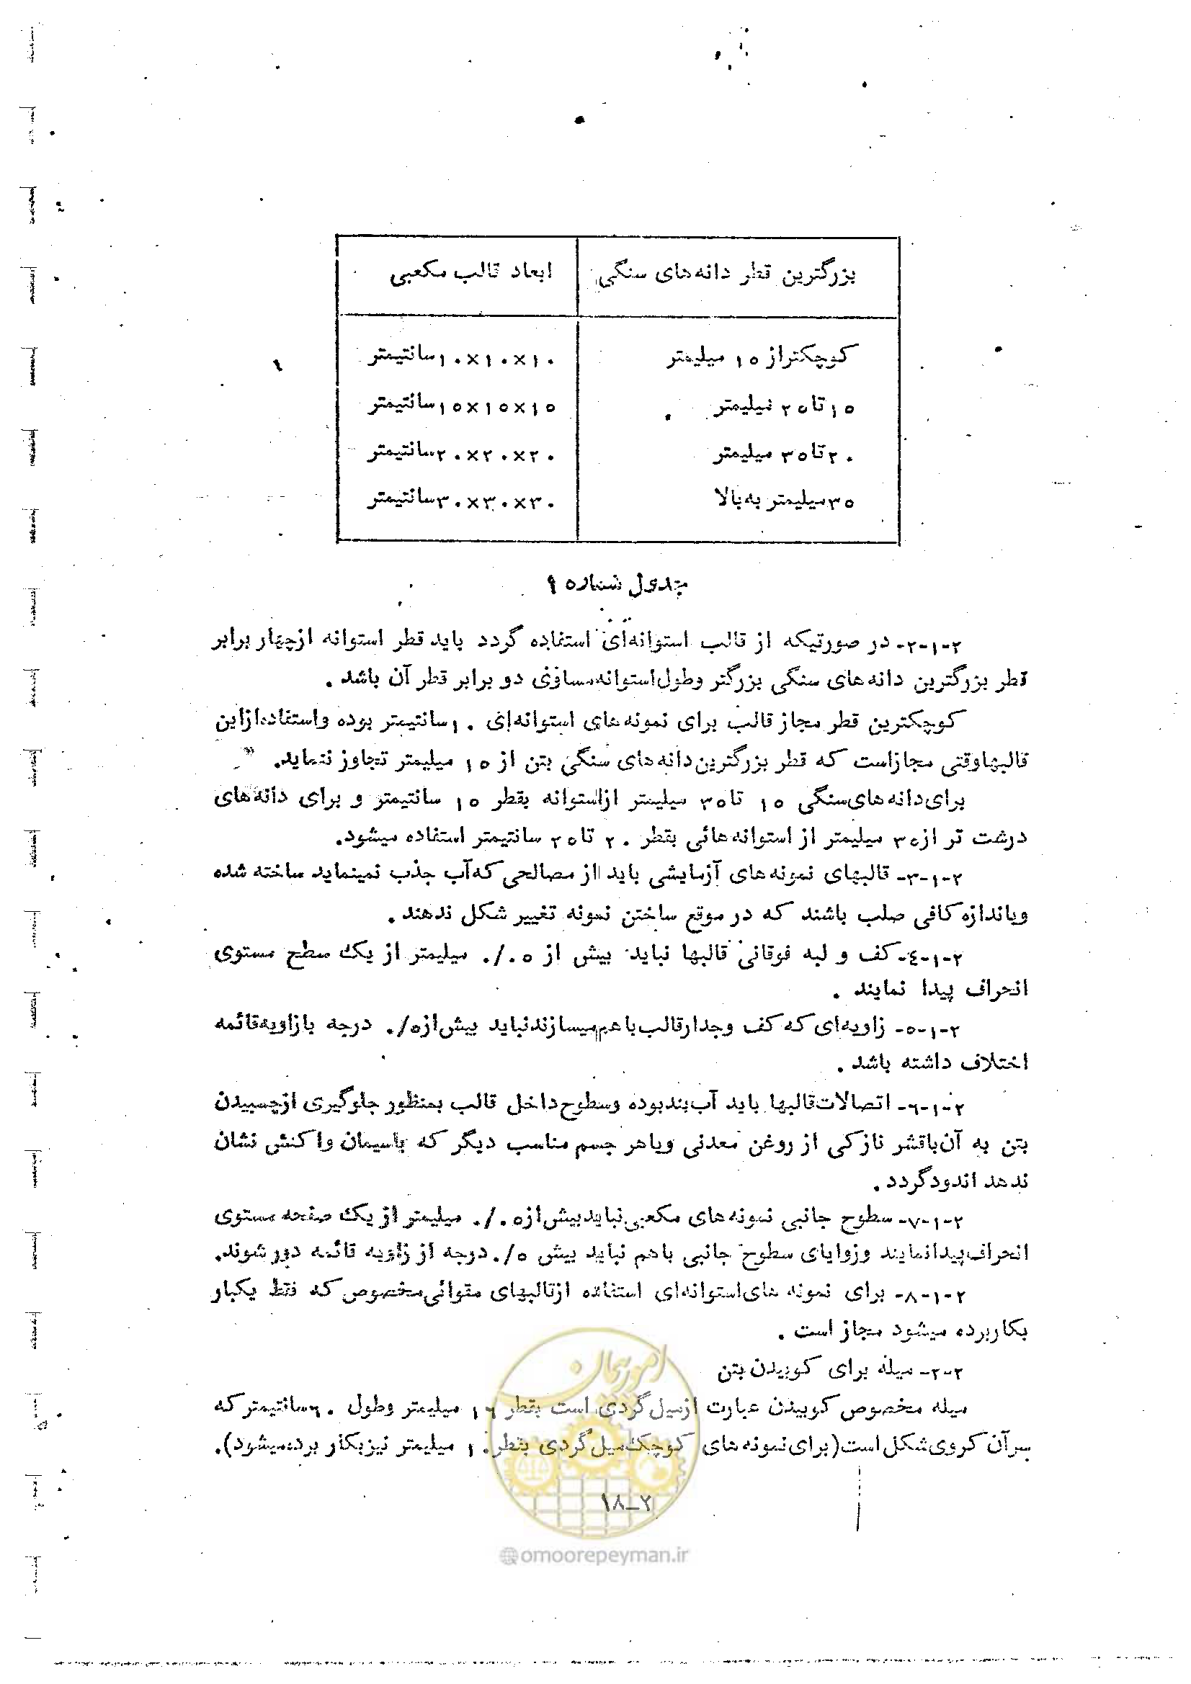 بزرگترین قطر دانه‌های سنگی ابعاد قالب مکعبی
کوچکتراز ۱۵ میلیمتر ۱۰×۱۰×۱۰ سانتیمتر
۱۵ تا ۲۵ میلیمتر ۱۵×۱۵×۱۵ سانتیمتر
۲۰ تا ۳۵ میلیمتر ۲۰×۲۰×۲۰ سانتیمتر
۳۵ میلیمتر به بالا ۳۰×۳۰×۳۰ سانتیمتر
جدول شماره ۹
۲-۱-۲- در صورتیکه از قالب استوانه‌ای استفاده گردد باید قطر استوانه ازچهار برابر
قطر بزرگترین دانه‌های سنگی بزرگتر وطول استوانه مساوی دو برابر قطر آن باشد .
کوچکترین قطر مجاز قالب برای نمونه‌های استوانه‌ای ۱۰ سانتیمتر بوده واستفاده ازاین
قالبها وقتی مجازاست که قطر بزرگترین دانه‌های سنگی بتن از ۱۵ میلیمتر تجاوز ننماید.
برای دانه‌های سنگی ۱۵ تا ۳۵ میلیمتر ازاستوانه بقطر ۱۵ سانتیمتر و برای دانه‌های
درشت تر از ۳۵ میلیمتر از استوانه‌هائی بقطر ۲۰ تا ۲۵ سانتیمتر استفاده میشود.
۲-۱-۳- قالبهای نمونه‌های آزمایشی باید از مصالحی که آب جذب نمینماید ساخته شده
وباندازه کافی صلب باشند که در موقع ساختن نمونه تغییر شکل ندهند .
۲-۱-٤- کف و لبه فوقانی قالبها نباید بیش از ۰/۰۵ میلیمتر از یک سطح مستوی
انحراف پیدا نمایند .
۲-۱-۵- زاویه‌ای که کف وجدار قالب با هم میسازند نباید بیش از ۰/۵ درجه با زاویه قائمه
اختلاف داشته باشد .
۲-۱-۶- اتصالات قالبها باید آب بند بوده وسطوح داخل قالب بمنظور جلوگیری ازچسبیدن
بتن به آن باقشر نازکی از روغن معدنی ویاهر جسم مناسب دیگر که باسیمان واکنش نشان
ندهد اندود گردد .
۲-۱-۷- سطوح جانبی نمونه‌های مکعبی نباید بیش از ۰/۰۵ میلیمتر از یک صفحه مستوی
انحراف پیدا نمایند وزوایای سطوح جانبی باهم نباید بیش ۰/۵ درجه از زاویه قائمه دور شوند.
۲-۱-۸- برای نمونه‌های استوانه‌ای استفاده ازقالبهای مقوائی مخصوص که فقط یکبار
بکاربرده میشود مجاز است .
۲-۲- میله برای کوبیدن بتن
میله مخصوص کوبیدن عبارت ازمیل گردی است بقطر ۱۶ میلیمتر وطول ۶۰ سانتیمتر که
سرآن کروی شکل است (برای نمونه‌های کوچک میل گردی بقطر ۱۰ میلیمتر نیز بکار برده میشود).
۱۸-۲
امور پیمان
@omoorepeyman.ir